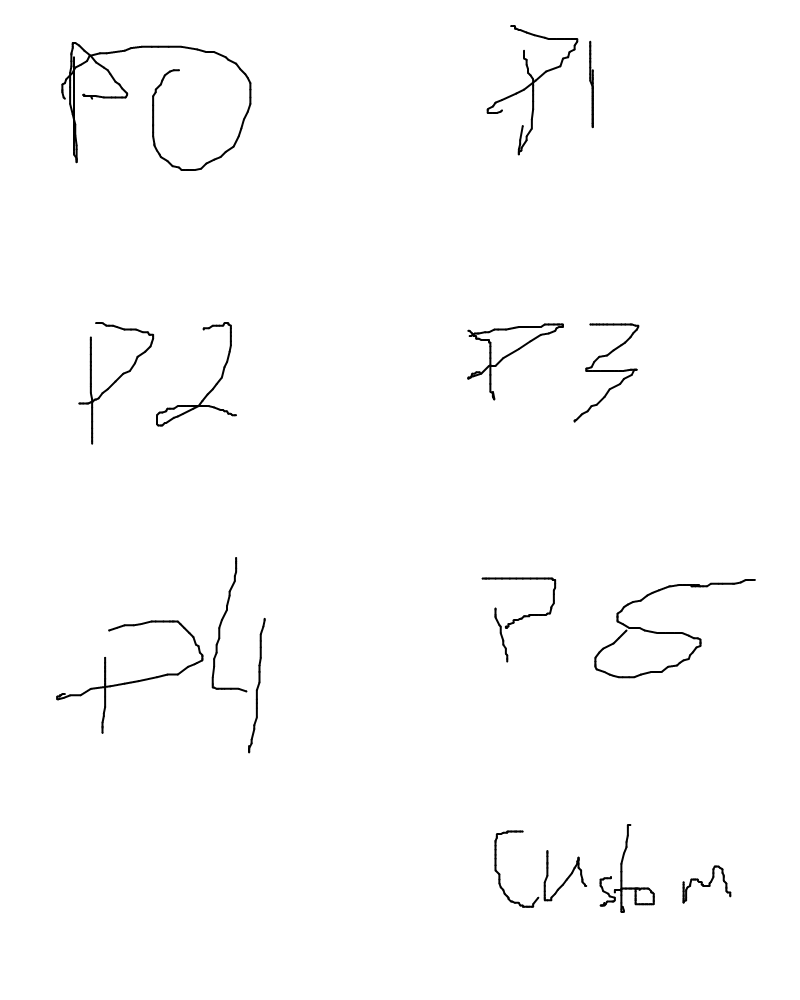 P0 P1
P2 P3
P4 P5
Custom